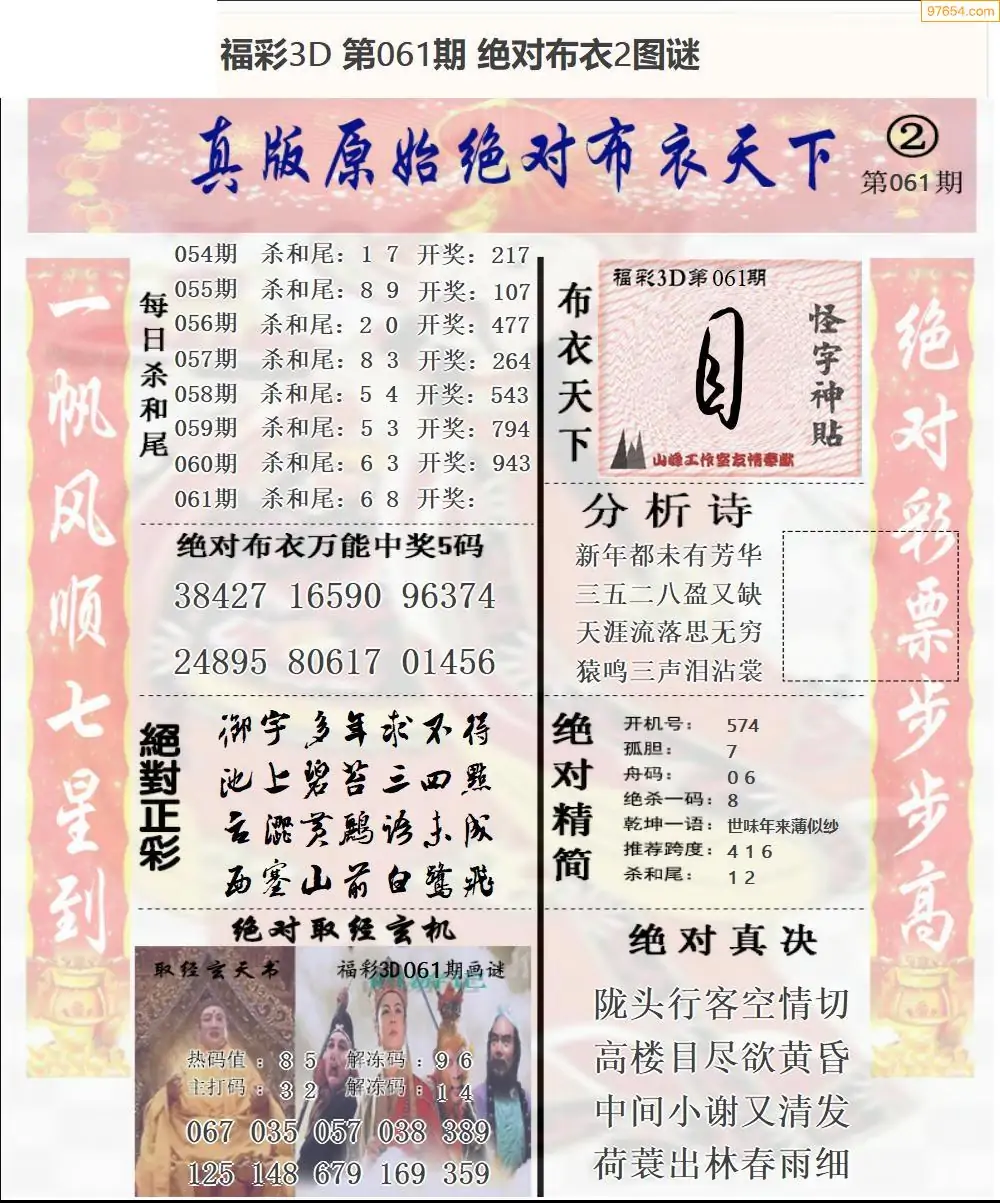 97654.com
福彩3D 第061期 绝对布衣2图谜
真版原始绝对布衣天下
②
第061期
一帆风顺七星到
每日杀和尾
054期 杀和尾：1 7 开奖：217
055期 杀和尾：8 9 开奖：107
056期 杀和尾：2 0 开奖：477
057期 杀和尾：8 3 开奖：264
058期 杀和尾：5 4 开奖：543
059期 杀和尾：5 3 开奖：794
060期 杀和尾：6 3 开奖：943
061期 杀和尾：6 8 开奖：
绝对布衣万能中奖5码
38427 16590 96374
24895 80617 01456
絕對正彩
御宇多年求不得
池上碧苔三四點
言澀黄鸝语未成
西塞山前白鹭飛
绝对取经玄机
取经玄天书
福彩3D061期画谜
热码值：8 5 解冻码：9 6
主打码：3 2 解冻码：1 4
067 035 057 038 389
125 148 679 169 359
布衣天下
福彩3D第061期
怪字神贴
山峰工作室友情奉献
分析诗
新年都未有芳华
三五二八盈又缺
天涯流落思无穷
猿鸣三声泪沾裳
绝对精简
开机号：574
孤胆：7
舟码：0 6
绝杀一码：8
乾坤一语：世味年来薄似纱
推荐跨度：4 1 6
杀和尾：1 2
绝对真决
陇头行客空情切
高楼目尽欲黄昏
中间小谢又清发
荷蓑出林春雨细
绝对彩票步步高